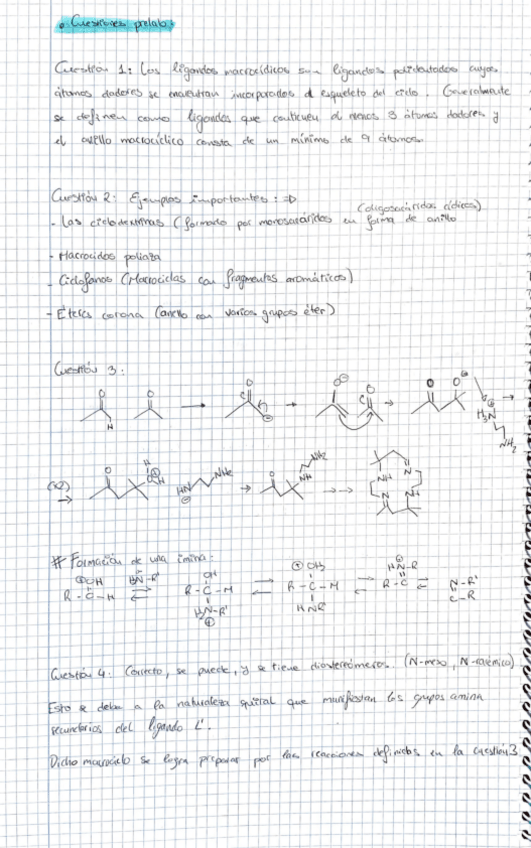 • Cuestiones prelab:
Cuestión 1: Los ligandos macrocíclicos son ligandos polidentados cuyos
átomos dadores se encuentran incorporados al esqueleto del ciclo. Generalmente
se definen como ligandos que contienen al menos 3 átomos dadores y
el anillo macrocíclico consta de un mínimo de 9 átomos.
Cuestión 2: Ejemplos importantes: =D
(oligosacáridos cíclicos)
- Las ciclodextrinas (formado por monosacáridos en forma de anillo
- Macrociclos poliaza
- Ciclofanos (Macrociclos con fragmentos aromáticos)
- Éteres corona (anillo con varios grupos éter)
Cuestión 3:
O O O O O O O
H H2N NH2
(x2) O NH2 NH NH2 O NH NH2 NH N N NH
# Formación de una imina:
OH H2N-R' OH OH2 HN-R N-R'
R-C-H R-C-H R-C-H R-C C-R
H2N-R' HNR'
Cuestión 4: Correcto, se puede, y se tiene diasterómeros. (N-meso, N-racémico)
Esto se debe a la naturaleza quiral que manifiestan los grupos amina
secundarios del ligando L'.
Dicho macrociclo se logra preparar por las reacciones definidas en la cuestión 3